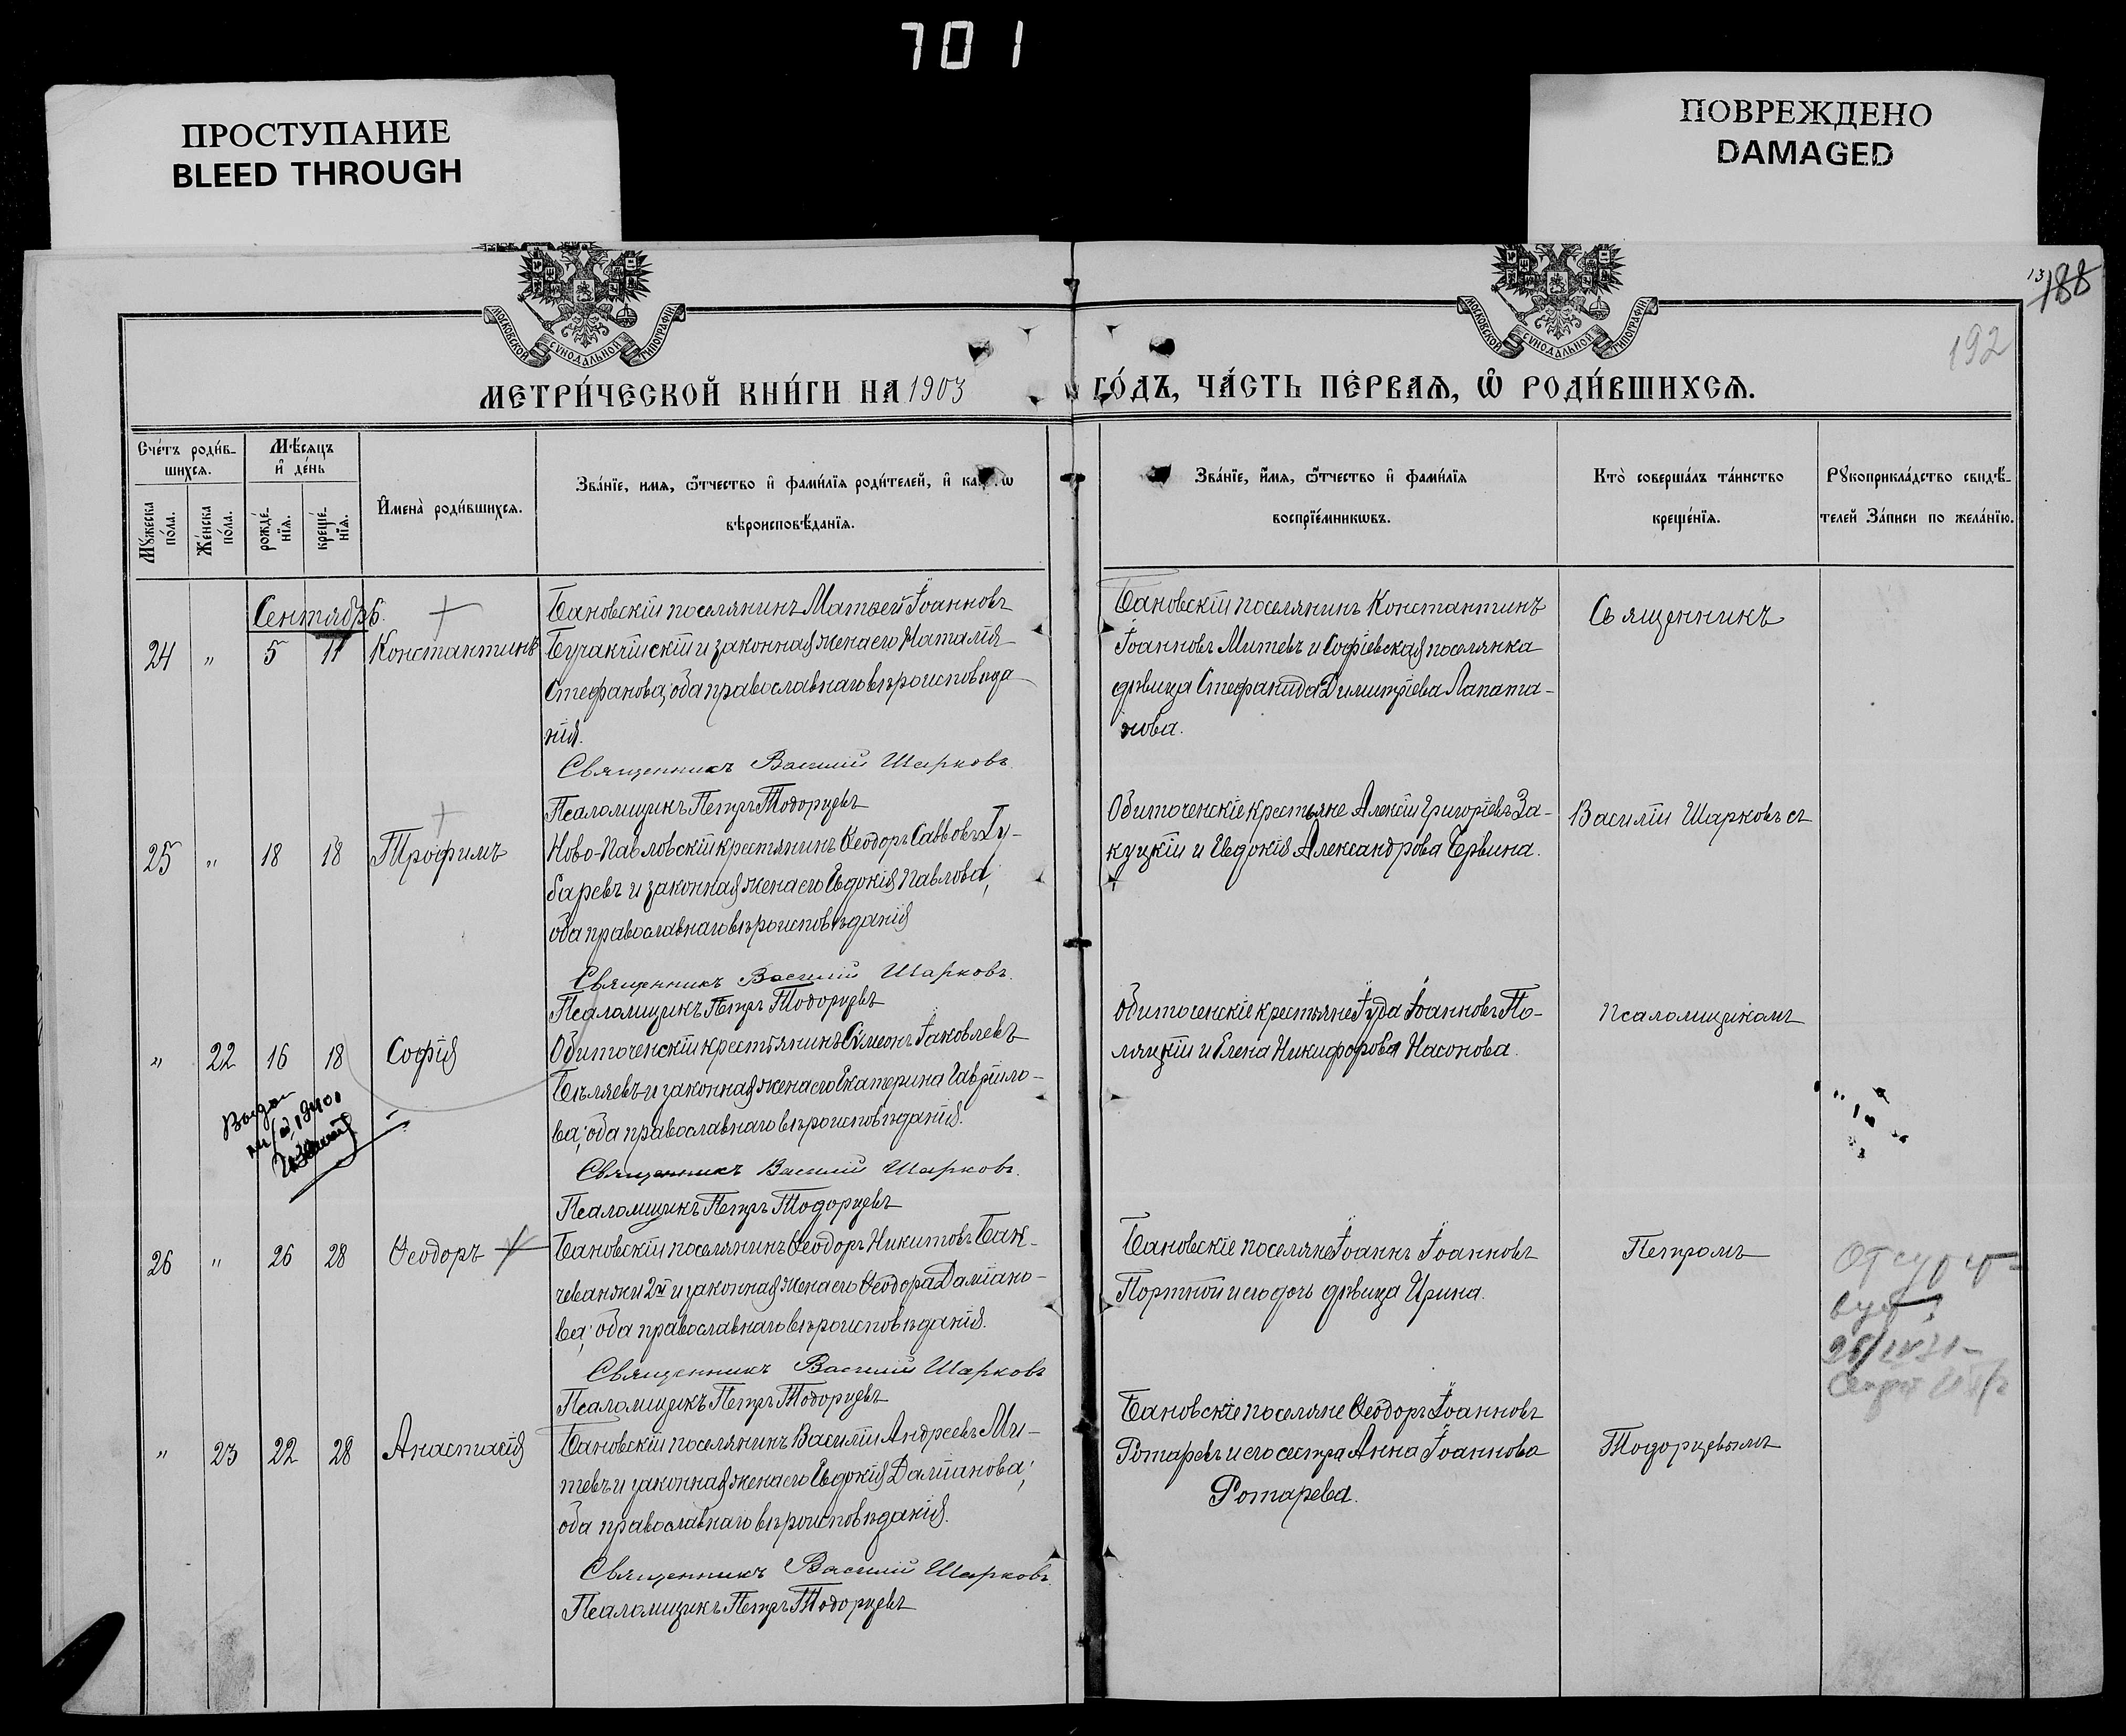 701
ПРОСТУПАНИЕ
BLEED THROUGH
ПОВРЕЖДЕНО
DAMAGED
13
188
192
МОСКОВСКОЙ СѴНОДАЛЬНОЙ ТИПОГРАФІИ
МОСКОВСКОЙ СѴНОДАЛЬНОЙ ТИПОГРАФІИ
МЕТРИ́ЧЕСКОЙ КНИ́ГИ НА 1903 ГО́ДЪ, ЧА́СТЬ ПЕ́РВАѦ, Ѽ РОДИ́ВШИХСѦ.
Сче́тъ роди́в-
шихсѧ.
Мꙋжеска по́ла.
Же́нска по́ла.
Мѣ́сѧцъ
и҆ де́нь
рожде́-нїѧ.
креще́-нїѧ.
И҆мена̀ роди́вшихсѧ.
Зва́нїе, имѧ, ѿтчество и҆ фами́лїѧ роди́телей, и҆
вѣроисповѣ́данїѧ.
Зва́нїе, и҆́мѧ, ѿтчество и҆ фами́лїѧ
воспрїе́мникѡвъ.
Кто̀ соверша́лъ та́инство
креще́нїѧ.
Рꙋкоприкла́дство свидѣ́-
телей За́писи по жела́нїю.
Сентябрь.
24 " 5 11 Константинъ
Бановскій поселянинъ Матѳей Іоанновъ
Бучакчійскій и законная жена его Наталія
Стефанова, оба православнаго вѣроисповѣда-
нія.
Священникъ Василій Шарковъ.
Псаломщикъ Петръ Тодорцевъ
Бановскій поселянинъ Константинъ
Іоанновъ Митевъ и Софіевская поселянка
дѣвица Стефанида Димитріева Лапата-
нова.
Священникъ
25 " 18 18 Трофимъ
Ново-Павловскій крестянинъ Ѳеодоръ Саввовъ Гу-
баревъ и законная жена его Евдокія Павлова,
оба православнаго вѣроисповѣданія
Священникъ Василій Шарковъ.
Псаломщикъ Петръ Тодорцевъ
Обиточенскіе крестьяне Алексій Григоріевъ За-
куцкій и Евдокія Александрова Бервина.
Василій Шарковъ съ
" 22 16 18 Софія
Обиточенскій крестьянинъ Сѵмеонъ Іаковлевъ
Бѣляевъ и законная жена его Екатерина Гавріило-
ва; оба православнаго вѣроисповѣданія.
Священникъ Василій Шарковъ.
Псаломщикъ Петръ Тодорцевъ
Обиточенскіе крестьяне Іуда Іоанновъ По-
ляцкій и Елена Никифорова Насонова.
Псаломщикомъ
26 " 26 28 Ѳеодоръ
Бановскій поселянинъ Ѳеодоръ Никитовъ Бан-
чеванжи 2й и законная жена его Ѳеодора Даміано-
ва; оба православнаго вѣроисповѣданія.
Священникъ Василій Шарковъ
Псаломщикъ Петръ Тодорцевъ
Бановскіе поселяне Іоаннъ Іоанновъ
Портной и его дочь дѣвица Ирина.
Петромъ
" 23 22 28 Анастасія
Бановскій поселянинъ Василій Андреевъ Ми-
тевъ и законная жена его Евдокія Даміанова;
оба православнаго вѣроисповѣданія.
Священникъ Василій Шарковъ.
Псаломщикъ Петръ Тодорцевъ
Бановскіе поселяне Ѳеодоръ Іоанновъ
Ротаревъ и его сестра Анна Іоаннова
Ротарева.
Тодорцевымъ